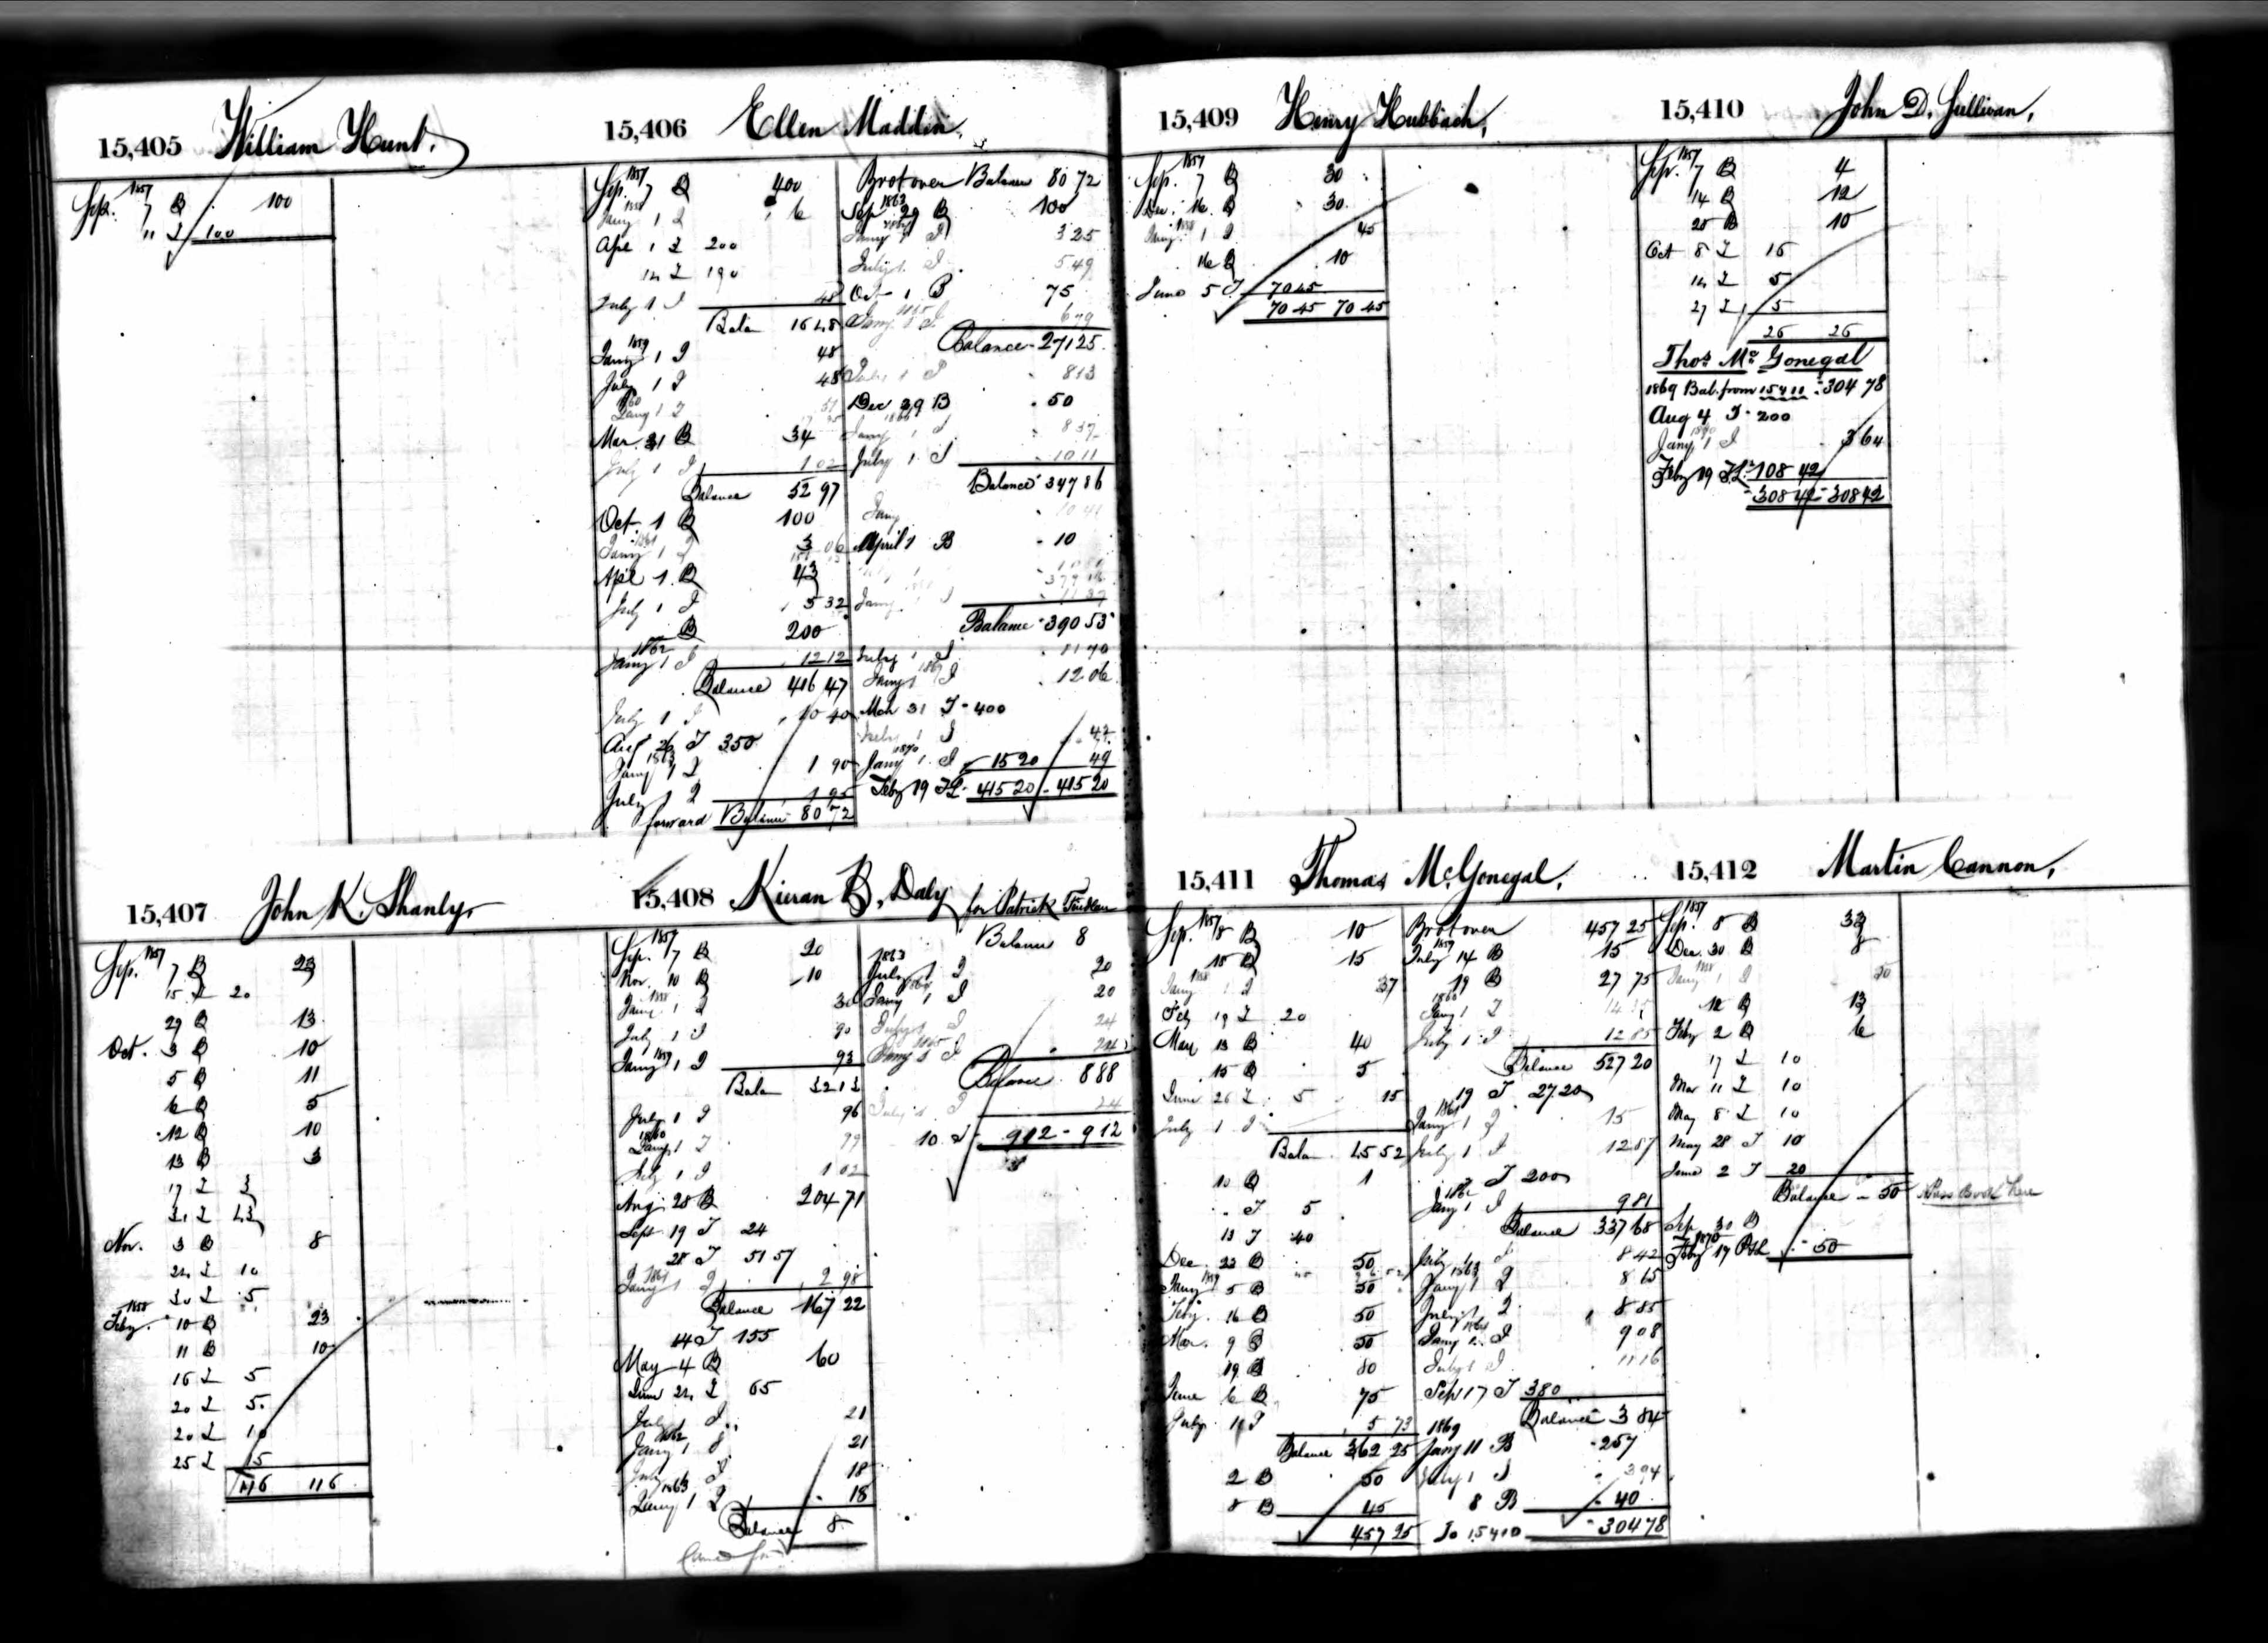 15,405 William Hunt.
Sep. 1857 7 B 100
" I 100
15,406 Ellen Maddin,
Sep. 1857 7 B 400
Jany 1858 1 I 6
Apl 1 I 200
14 I 190
July 1 I 48
Bala 16 48
Jany 1859 1 I 48
July 1 I 48
1860
Jany 1 I 51
Mar 31 B 34
July 1 I 1 02
Balance 52 97
Oct. 1 B 100
Jany 1861 1 I 3 06
Apl 1 B 43
July 1 I 5 32
B 200
1862
Jany 1 I 12 12
Balance 416 47
July 1 I 10 40
Aug 26 I 350
Jany 1863 1 I 1 90
July 1 I 1 95
forward Balance 80 72
Brot over Balance 80 72
Sep 1863 29 B 100
Jany 1 I 3 25
July 1 I 5 49
Oct 1 B 75
Jany 1865 1 I 6 79
Balance 271 25
July 1 I 8 13
Dec 29 B 50
Jany 1866 1 I 8 37
July 1 I 10 11
Balance 347 86
Jany 10 41
April 1 B 10
Jany 1 I 11 37
Balance 390 53
July 1 I 11 70
Jany 1869 1 I 12 06
Mch 31 I 400
July 1 I 42
Jany 1870 1 I 15 20 49
Feby 19 I 415 20 415 20
15,407 John K. Shanly,
Sep. 1857 7 B 23
15 I 20
29 B 13
Oct. 3 B 10
5 B 11
6 B 5
12 B 10
13 B 3
17 I 3
21 I 43
Nov. 3 B 8
24 I 10
30 I 5
1858
Feby. 10 B 23
11 B 10
16 I 5
20 I 5
20 I 10
25 I 15
116 116
15,408 Kieran B. Daly for Patrick
Sep. 1857 7 B 20
Nov. 10 B 10
Jany 1858 1 I 30
July 1 I 90
Jany 1859 1 I 93
Bala 32 13
July 1 I 96
1860
Jany 1 I 99
July 1 I 1 02
Aug. 28 B 204 71
Sept 19 I 24
28 I 51 57
Jany 1861 1 I 2 98
Balance 167 22
14 I 155
May 4 B 60
June 24 I 65
July 1 I 21
Jany 1862 1 I 21
July 1 I 18
1863
Jany 1 I 18
Balance 8
Balance 8
1863
July 1 I 20
Jany 1864 1 I 20
July 1 I 24
Jany 1865 1 I 24
Balance 8 88
July 1 I 24
10 I 9 12 9 12
15,409 Henry Hubbach,
Sep. 1857 7 B 30
Dec. 16 B 30
Jany 1858 1 I 45
16 B 10
June 5 I 70 45
70 45 70 45
15,410 John D. Sullivan,
Sep. 1857 7 B 4
14 B 12
28 B 10
Oct 8 I 16
14 I 5
27 I 5
26 26
Thos Mc Gonegal
1869 Bal. from 15411 304 78
Aug 4 I 200
Jany 1870 1 I 3 64
Feby 19 I 108 42
308 42 308 42
15,411 Thomas McGonegal,
Sep. 1857 8 B 10
15 B 15
Jany 1858 1 I 37
Feb 19 I 20
May 13 B 40
15 B 5
June 26 I 5 15
July 1 I
Bala 45 52
10 B 1
I 5
13 I 40
Dec 22 B 50
Jany 1859 5 B 50
Feby. 16 B 50
Mar. 9 B 50
19 B 80
June 6 B 75
July 1 I 5 73
Balance 362 25
2 B 50
8 B 45
457 25
Brot over 457 25
July 1859 14 B 15
19 B 27 75
1860
Jany 1 I
July 1 I 12 85
Balance 527 20
19 I 27 20
1861
Jany 1 I 15
July 1 I 12 87
I 200
1862
Jany 1 I 9 81
Balance 337 68
July 1 I 8 42
Jany 1863 1 I 8 65
July 1 I 8 85
Jany 1864 1 I 9 08
July 1 I 11 16
Sep 17 I 380
Balance 3 84
1869
Jany 11 B 257
July 1 I 3 94
8 B 40
To 15410 304 78
15,412 Martin Cannon,
Sep. 1857 8 B 33
Dec. 30 B 8
Jany 1858 1 I 50
12 B 13
Feby 2 B 6
17 I 10
Mar 11 I 10
May 8 I 10
May 28 I 10
June 2 I 20
Balance 50 Pass Book here
Sep 30 B
1870
Feby 19 50